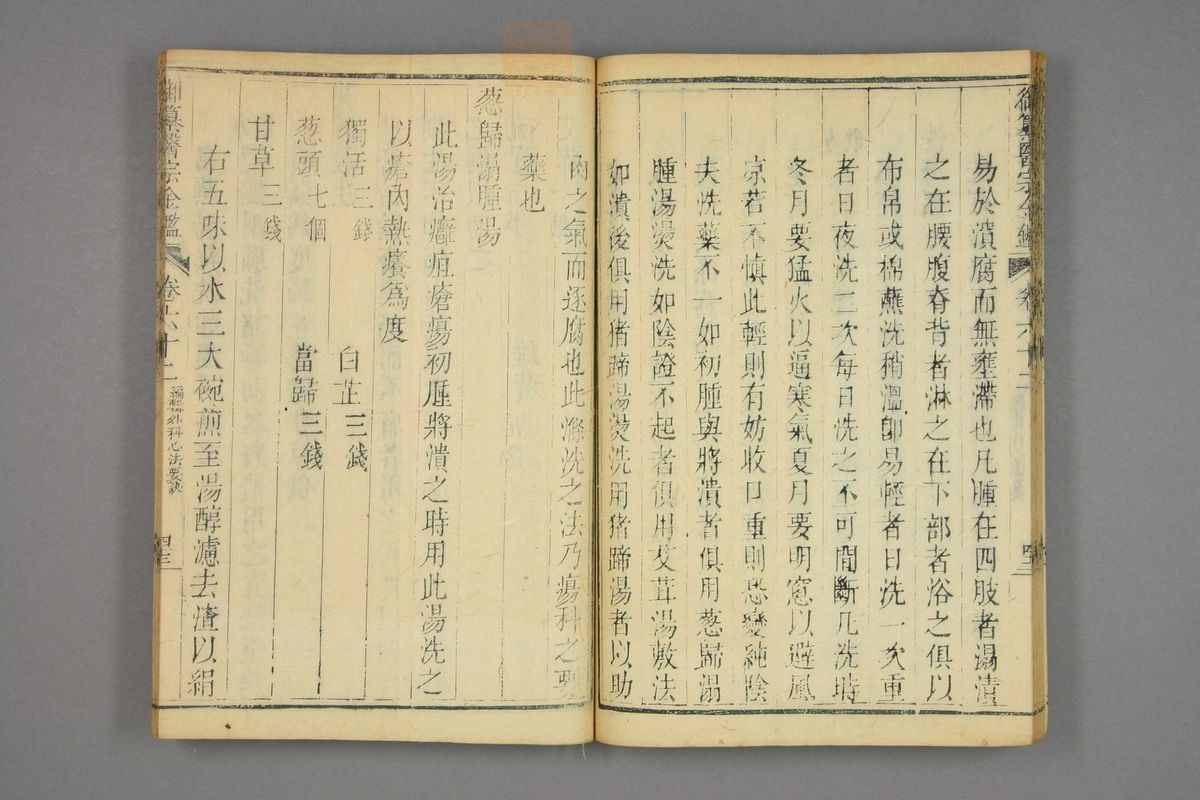 御纂醫宗金鑑
卷六十二
易於潰腐而無壅滯也凡腫在四肢者湯漬
之在腰腹脊背者淋之在下部者浴之俱以
布帛或棉蘸洗稍溫即易輕者日洗一次重
者日夜洗二次每日洗之不可間斷凡洗時
冬月要猛火以逼寒氣夏月要明窻以避風
凉若不慎此輕則有妨收口重則恐變純陰
夫洗藥不一如初腫與將潰者俱用葱歸湯
腫湯燙洗如陰證不起者俱用艾茸湯敷法
如潰後俱用猪蹄湯燙洗用猪蹄湯者以助
肉之氣而逐腐也此滌洗之法乃瘍科之要
藥也
葱歸溻腫湯
此湯治癰疽瘡瘍初腫將潰之時用此湯洗之
以瘡內熱癢為度
獨活三錢 白芷三錢
葱頭七個 當歸三錢
甘草三錢
右五味以水三大碗煎至湯醇濾去渣以絹
御纂醫宗金鑑
卷六十二
編輯外科心法要訣
四三